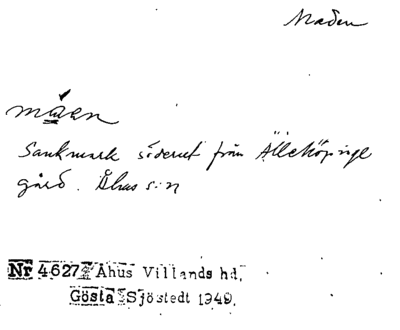 Maden
måen
Sankmark söderut från Älleköpinge
gård. Åhus s:n
Nr 4627 Åhus Villands hd.
Gösta Sjöstedt 1949.